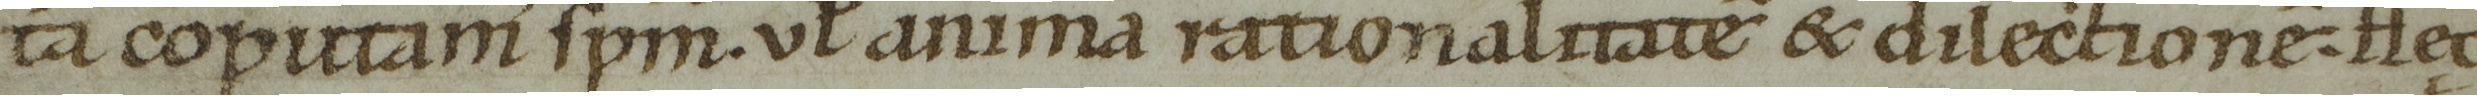 ta coputam spm. vl anima rationalitatē & dilectionē. Nec